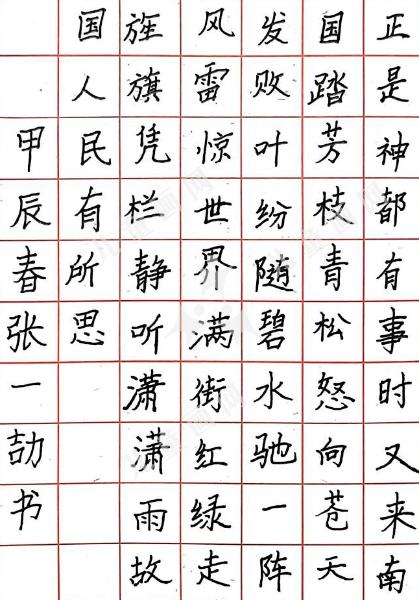 正是神都有事时又来南
国踏芳枝青松怒向苍天
发败叶纷随碧水驰一阵
风雷惊世界满街红绿走
旌旗凭栏静听潇潇雨故
国人民有所思
甲辰春张一劼书